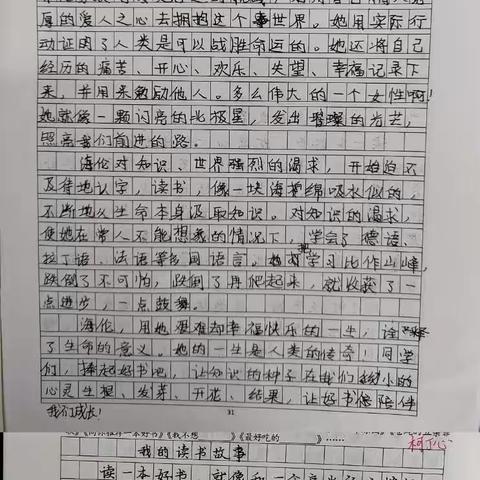 厚的爱人之心去拥抱这个世界。她用实际行
动证明了人类是可以战胜命运的。她还将自己
经历的痛苦、开心、欢乐、失望、幸福记录下
来，并用来勉励他人。多么伟大的一个女性啊！
她就像一颗闪亮的北极星，发出璀璨的光芒，
照亮我们前进的路。
海伦对知识、世界强烈的渴求，开始迫不
及待地认字，读书，像一块海绵吸水似的，
不断地从生命本身汲取知识。对知识的渴求，
使她在常人不能想象的情况下，学会了德语、
拉丁语、法语等多国语言。她把学习比作山峰，
跌倒了不可怕，跌倒了再爬起来，就收获了一
点进步，一点鼓舞。
海伦，用她艰难却幸福快乐的一生，诠释
了生命的意义。她的一生是人类的传奇！同学
们，捧起好书吧，让知识的种子在我们幼小的
心灵生根、发芽、开花、结果，让好书像陪伴
我们成长！
31
《我不想
》《最好吃的
》……
柯丁心
我的读书故事
读一本好书，就像和一个